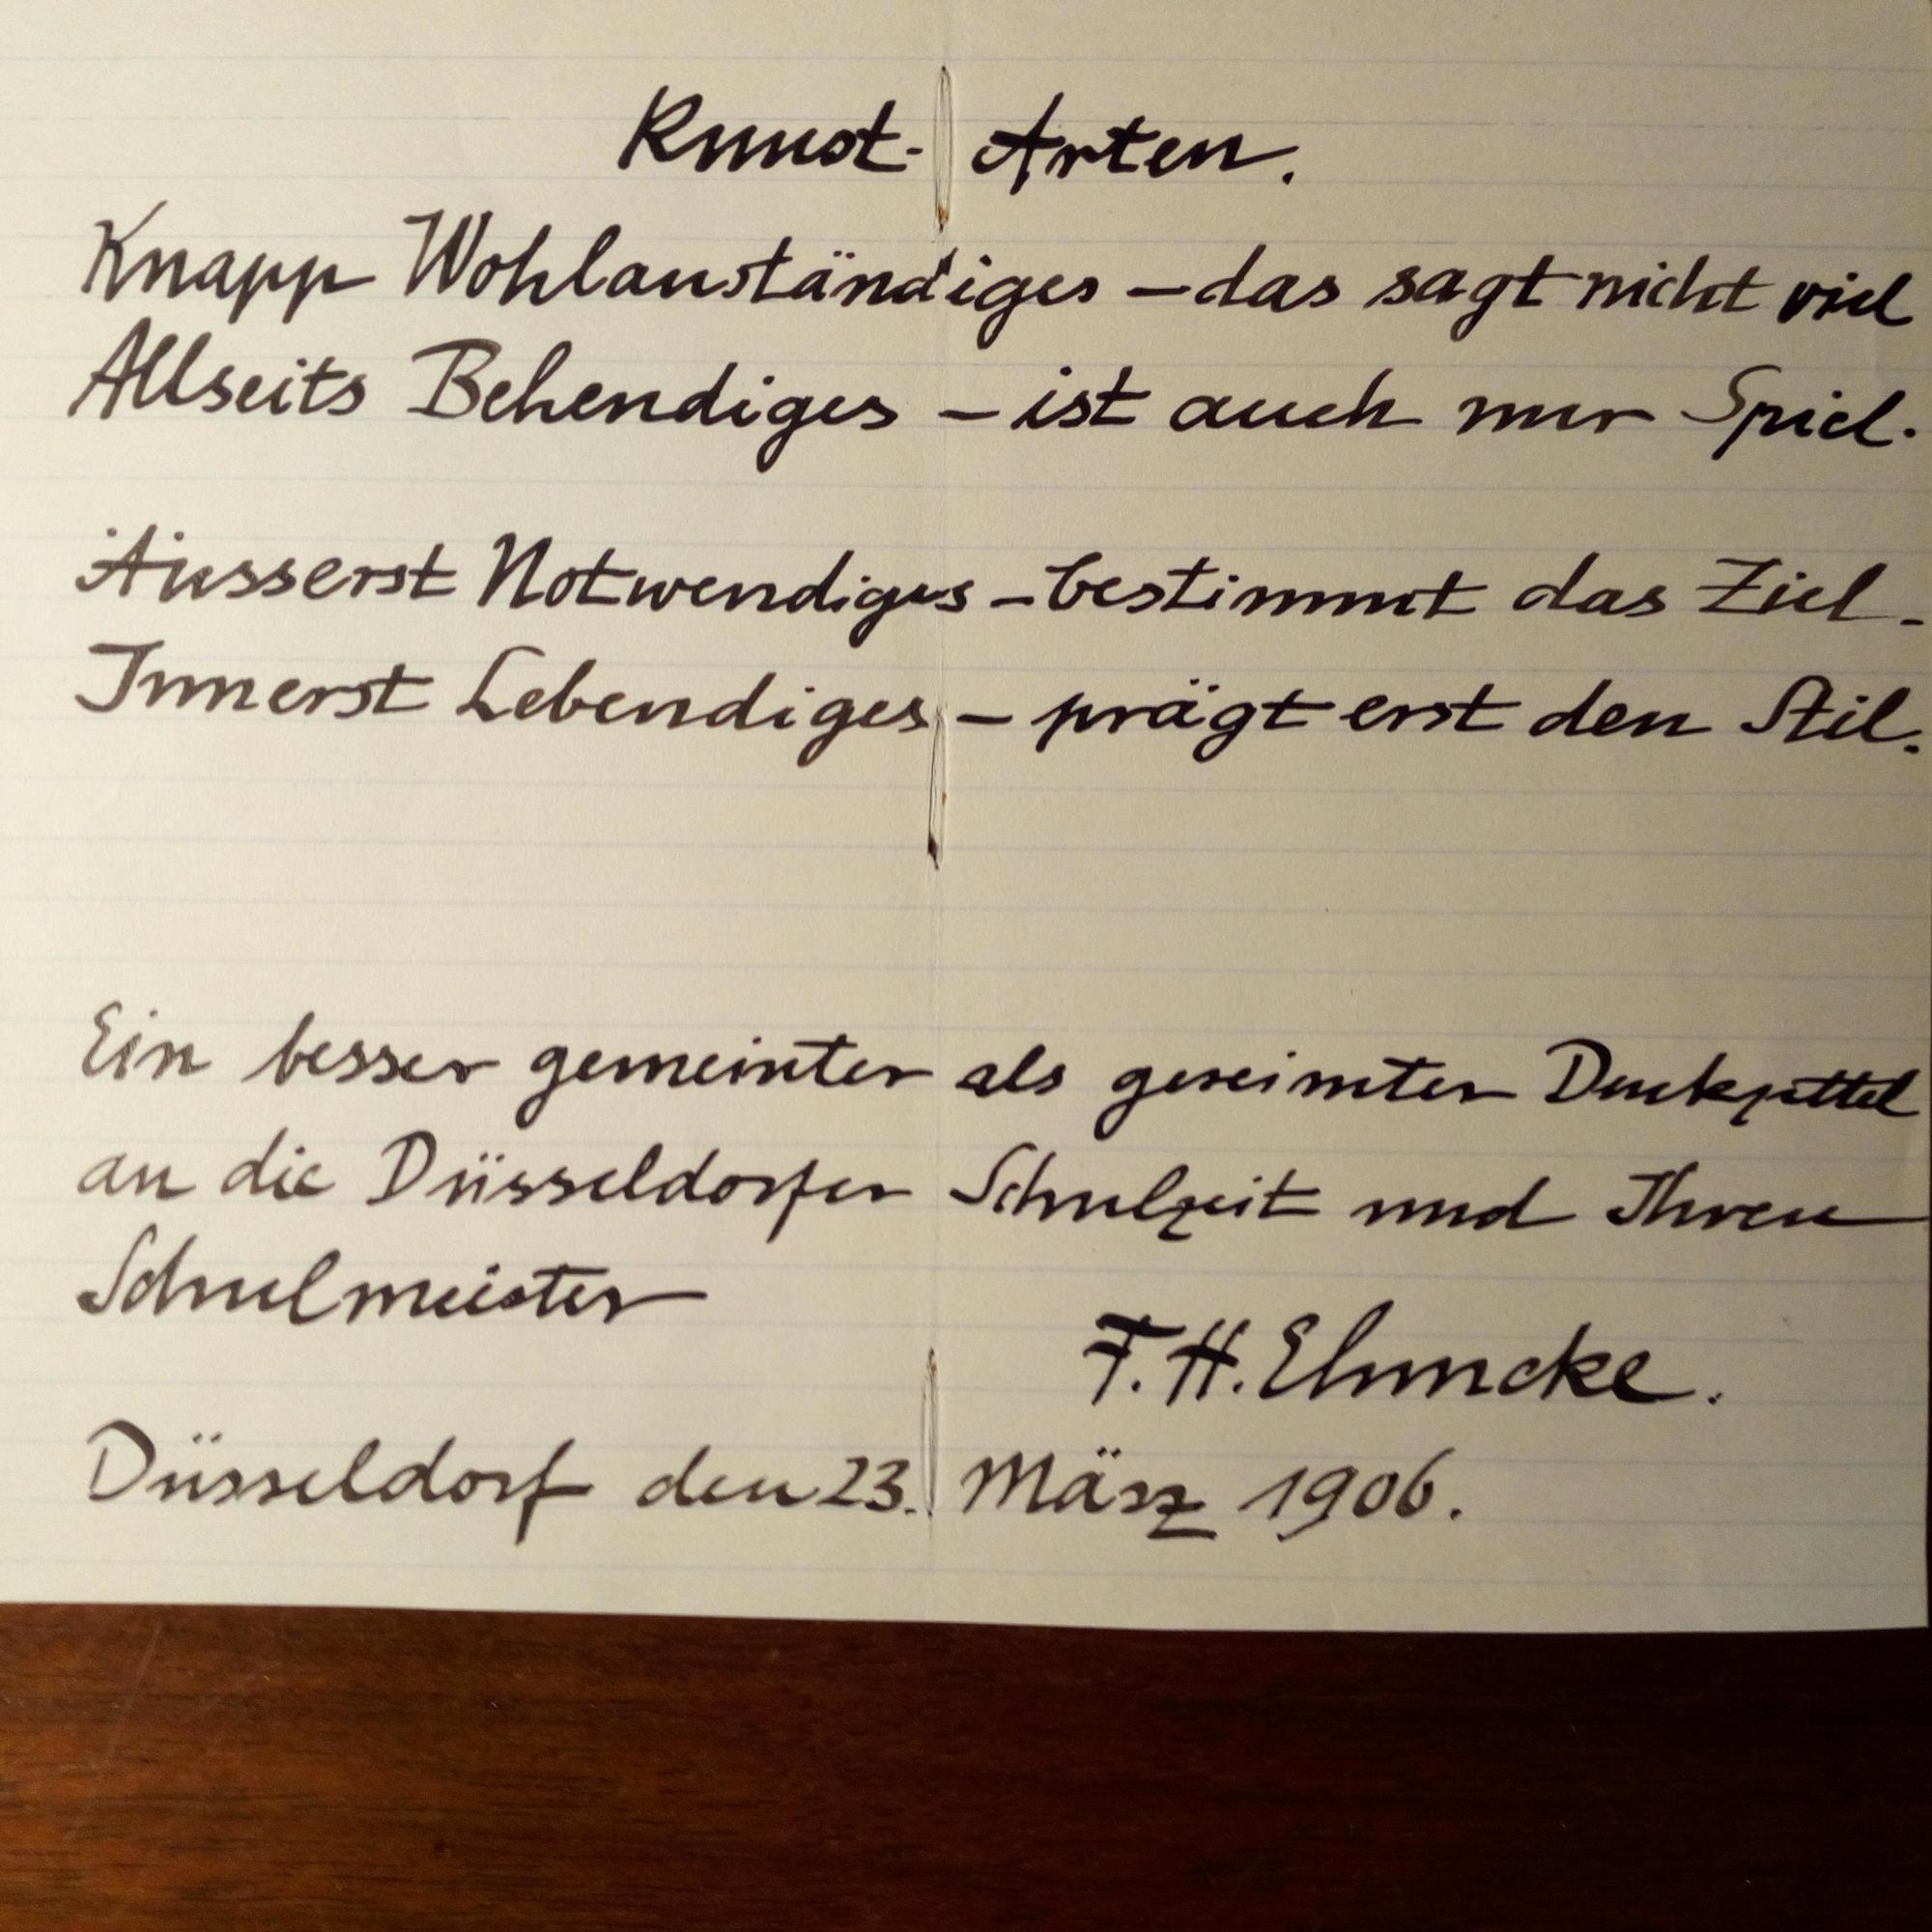 Kunst- Arten.
Knapp Wohlanständiges – das sagt nicht viel
Allseits Behendiges – ist auch nur Spiel.
Äusserst Notwendiges – bestimmt das Ziel.
Innerst Lebendiges – prägt erst den Stil.
Ein besser gemeinter als gereimter Denkzettel
an die Düsseldorfer Schulzeit und Ihren
Schulmeister
F. H. Ehmcke.
Düsseldorf den 23. März 1906.